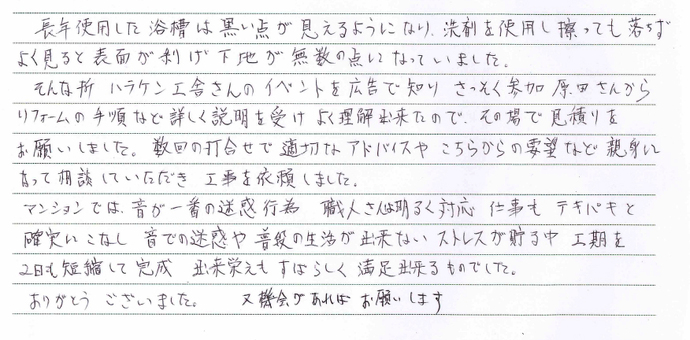 長年使用した浴槽は黒い点が見えるようになり、洗剤を使用し擦っても落ちず
よく見ると表面が剥げ下地が無数の点になっていました。
そんな折 ハラケン工舎さんのイベントを広告で知り さっそく参加 原田さんから
リフォームの手順など詳しく説明を受け よく理解出来たので、その場で見積りを
お願いしました。数回の打合せで適切なアドバイスや こちらからの要望など 親身に
なって相談していただき 工事を依頼しました。
マンションでは、音が一番の迷惑行為 職人さんは明るく対応 仕事も テキパキと
確実にこなし 音での迷惑や 普段の生活が出来ない ストレスが貯る中 工期を
2日も短縮して完成 出来栄えも すばらしく 満足出来るものでした。
ありがとう ございました。 又機会があれば お願いします